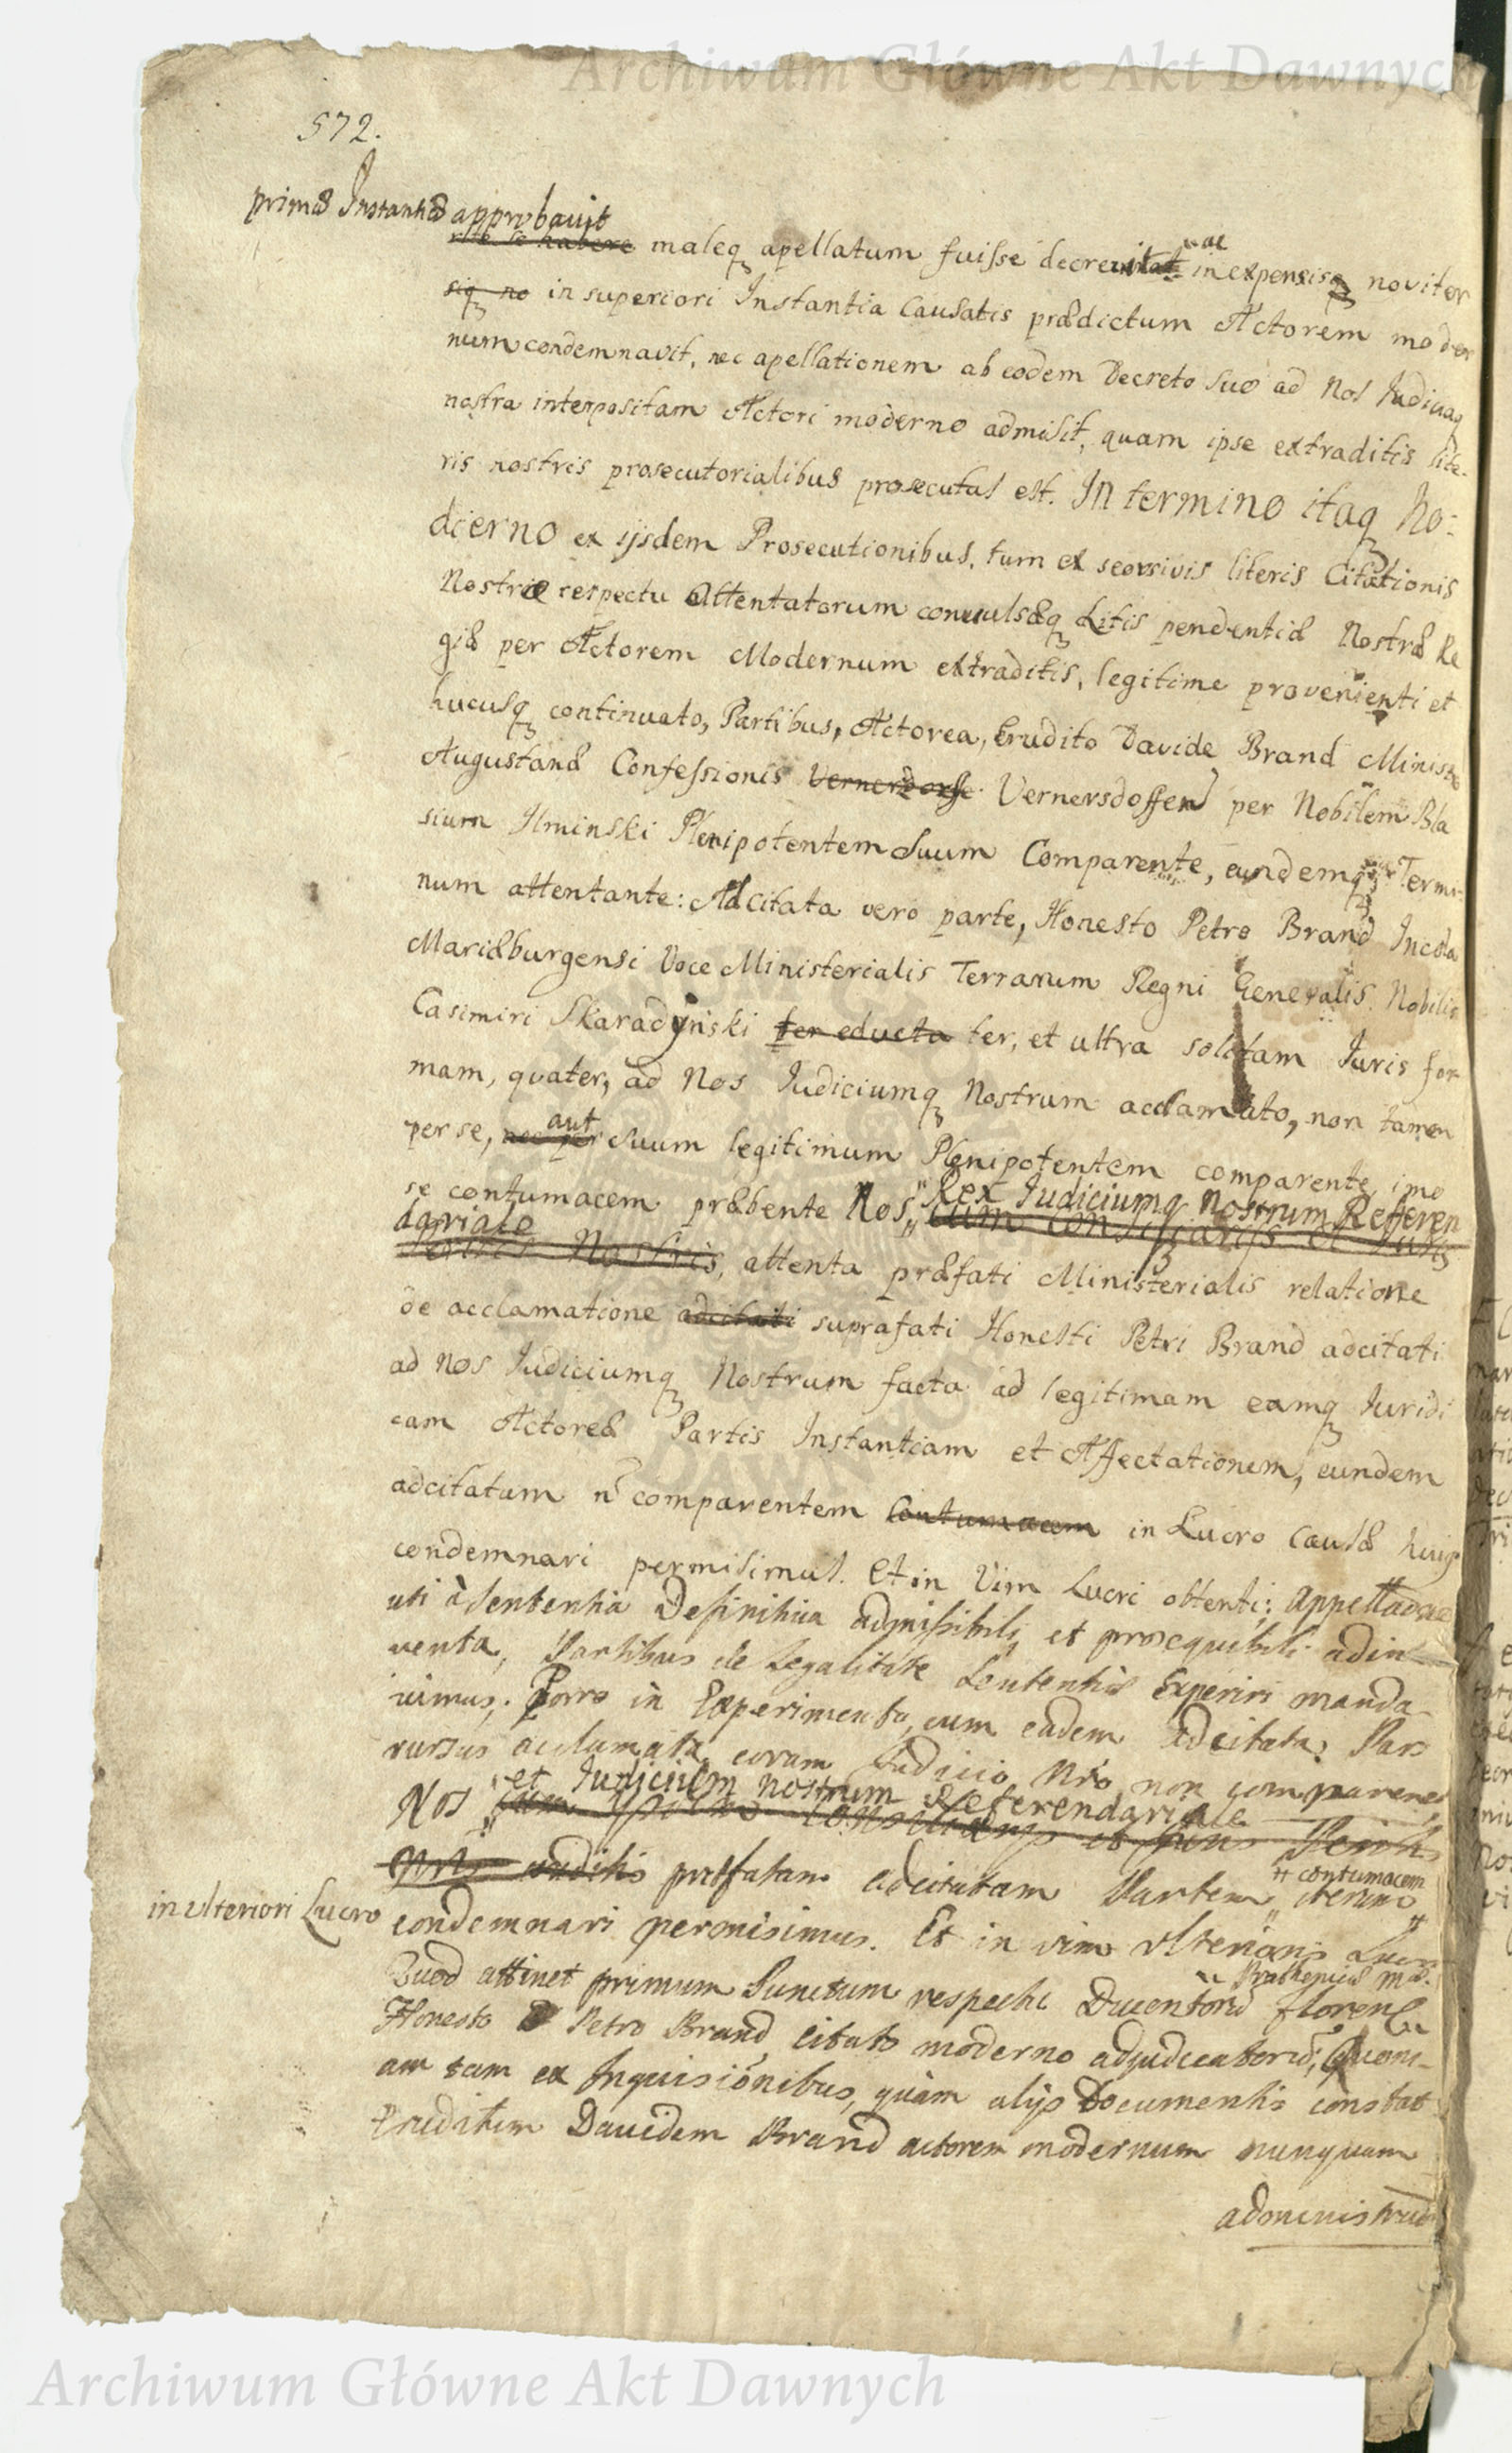 Archiwum Główne Akt Dawnych
572.
primæ Instantiæ approbavit
rite se habere maleq apellatum fuisse decrevit inexpensisq noviter
siq no in superiori Instantia Causatis prædictum Actorem moder
num condemnavit, nec apellationem ab eodem Decreto suo ad Nos Judiciaq
nostra interpositam Actori moderno admisit, quam ipse extraditis lite-
ris nostris prosecutorialibus prosecutus est. In termino itaq ho-
dierno ex ijsdem Prosecutionibus, tum ex seorsivis literis Citationis
Nostræ respectu Attentatorum convulsæq Litis pendentiæ Nostræ Re
giæ per Actorem Modernum extraditis, legitime provenienti et
hucusq continuato, Partibus, Actorea, Erudito Davide Brand Ministro
Augustanæ Confessionis Vernersdorffe Vernersdoffen per Nobilem Bla
sium Ilminski Plenipotentem Suum Comparente, eundemq Termi-
num attentante: Adcitata vero parte, Honesto Petro Brand Incola
Mariæburgensi Voce Ministerialis Terrarum Regni Generalis Nobilis
Casimiri Skaradyński ter educta ter, et ultra solitam Juris for
mam, quater, ad Nos Judiciumq Nostrum acclamato, non tamen
per se, nec per aut Suum legitimum Plenipotentem comparente, imo
se contumacem præbente Nos Rex Judiciumq Nostrum Referen
dariale
cum Consiliarijs et
Nostris, attenta præfati Ministerialis relatione
de acclamatione adcitati suprafati Honesti Petri Brand adcitati
ad Nos Judiciumq Nostrum facta ad legitimam eamq Juridi
cam Actoreæ Partis Instantiam et Affectationem, eundem
adcitatum n comparentem Contumacem in Lucro Causæ huiq
condemnari permisimus. Et in Vim Lucri obtenti; appellatione
uti à Sententia Definitiva admissibili et prosequibili adin
venta, Partibus de Legalitate Sententiæ Experiri manda-
vimus; Porro in Experimento, cum eadem Adcitata Pars
rursus acclamata coram Judicio Nro non comparens,
Nos et Judicium nostrum Referendariale
auditis præfatam adcitatam Partem contumacem iterum
in ulteriori Lucro
condemnari permisimus. Et in vim ulterioris Lucri
Quod attinet primum Punctum respectu Ducentorũ Pruthenicæ Mæ. floren
Honesto Petro Brand, citato moderno adjudicatorũ, Quoni-
am tam ex Inquisitionibus, quàm alijs Documentis constat
Eruditum Davidem Brand actorem modernum nunquam
administrand
Archiwum Główne Akt Dawnych